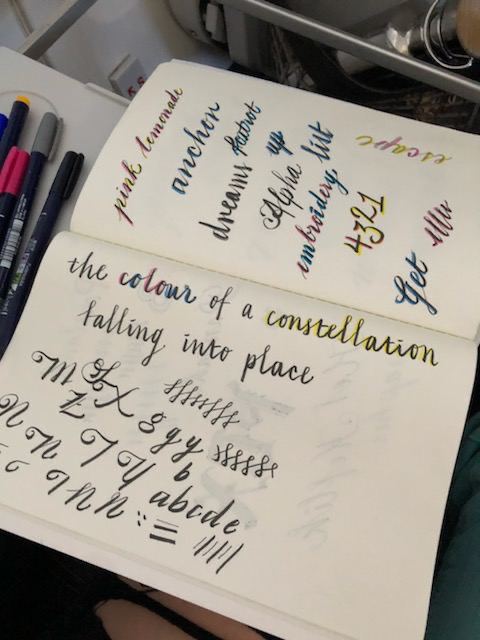 pink lemonade
anchor
foxtrot
dreams
up
Alpha
list
embroidery
escape
4321
Get
the colour of a constellation
falling into place
g y y
b
abcde